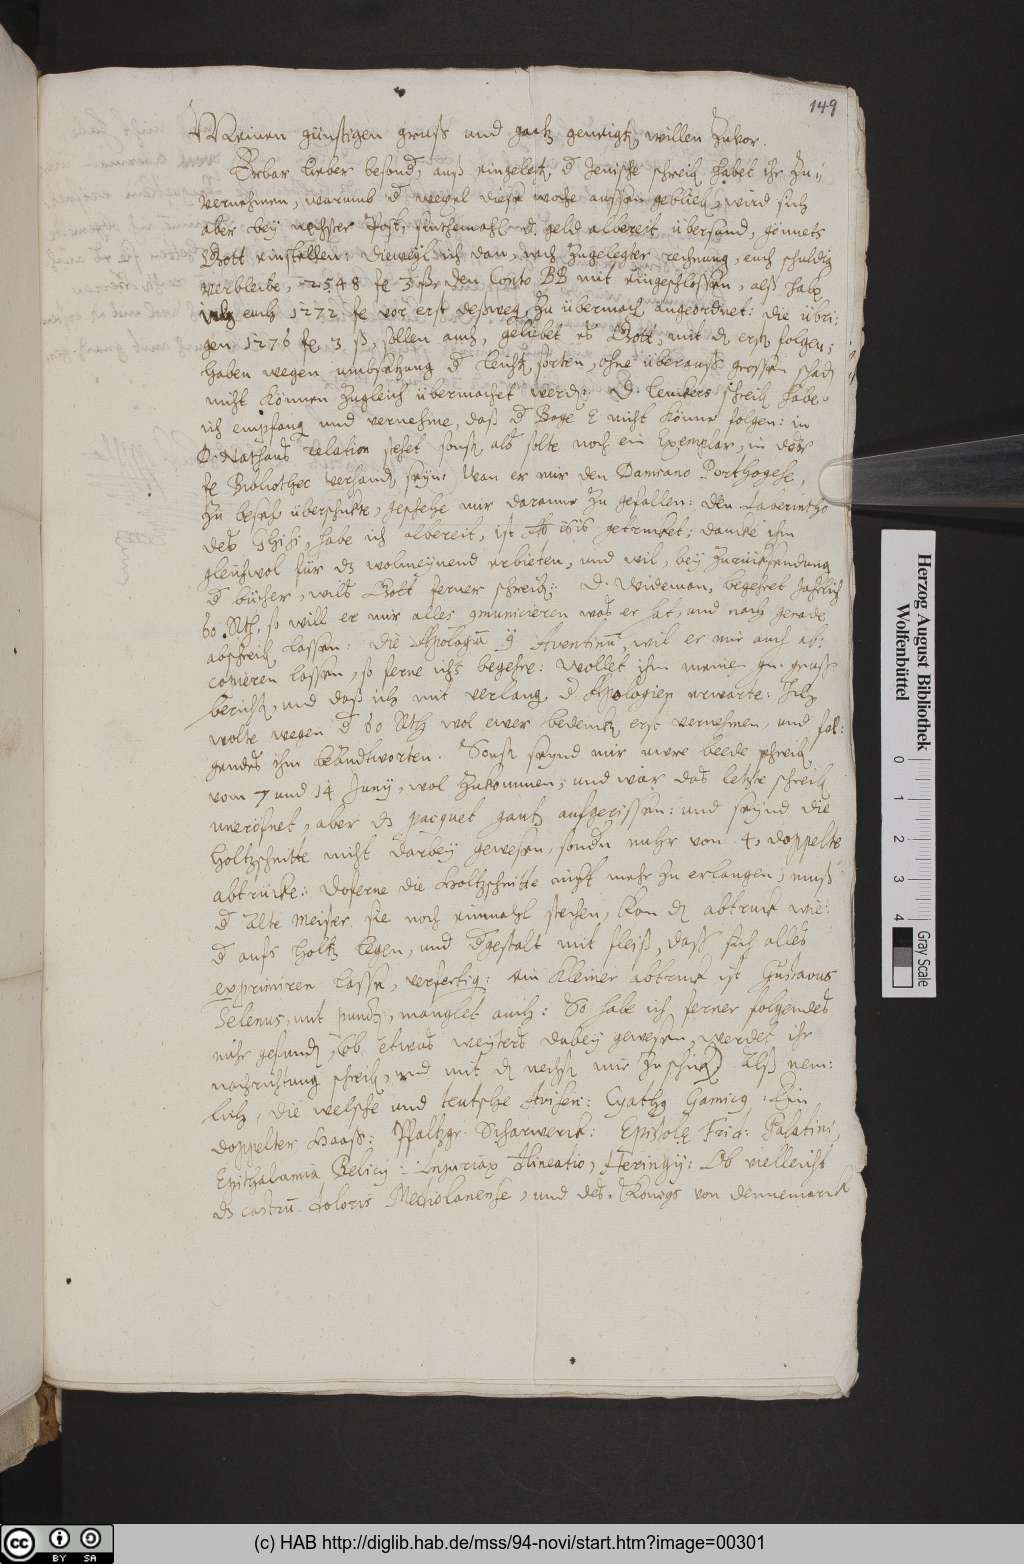 149
Meinen günstigen gruß und gantz geneigtn willen zuvor.
Erbar lieber besond, auß eingelegtn, d Jenische schreibn habet ihr zu
vernehmen, warumb d wexel diese woche aussen geblieben, wird sich
aber bey nechster Post, sintemahl d. geld albereit übersand, gönnets
Gott einstellen: dieweyl ich dan, nach zugelegter rechnung, euch schuldig
verbleibe, 2548 fl 3 ß, den Conto BB mit eingeschlossen, alß habe
ich euch 1272 fl vor erst deßwegn zu übermachn angeordnet: die übri:
gen 1276 fl 3 ß, sollen auch, geliebet es Gott, mit dn erstn folgen;
haben wegen umbsetzung d leichtn sorten, ohne überauß grossen schadn
nicht können zugleich übermachet werdn. D. Leukers schreibn habe
ich empfangn und vernehme, daß d Boge E nicht könne folgen: in
D. Nathans relation stehet sonst als solte noch ein Exemplar, in der
fl Bibliothec verhandn seyn: Wan er mir den Damiano Porthogese,
zu besehn überschickte, geschehe mir daranne zu gefallen: den Laberintho
des Ghisi, habe ich albereit, ist Ao 1616 getrucket; dancke ihm
gleichwol für dz wolmeynend erbieten, und wil, bey zurücksendung
d bücher, wils Gott ferner schreibn: D. Wideman, begehret Jährlich
60 Rth, so will er mir alles communicieren was er hat, und nach gerade
abschreibn lassen: die Apologiam Aventinum, wil er mir auch ab:
copieren lassen, so ferne ichs begehre: wollet ihm meinen gn. gruß
berichtn, und daß ich mit verlangn d. Apologien erwarte: Ich
wolte wegen d 60 Rth wol ewer bedenckn erst vernehmen, und fol:
gendes ihm beandtworten. Sonst seynd mir ewre beede schreibn
vom 7 und 14 Juny, wol zukommen; und war das letzte schreibn
uneröfnet, aber dz pacquet gantz aufgerissen: und seynd die
holtzschnitte nicht darbey gewesen, sondn nuhr von 4, doppelte
abtrücke: Doferne die Holtzschnitte nicht mehr zu erlangen, muß
d alte meister sie noch einmahl stechen, kan dn abtruck wie:
d aufs holtz legen, und dgestalt mit fleiß, daß sich alles
exprimiren lasse, verfertign: ein kleiner abtruck ist Gustavus
Selenus, mit punctn, manglet auch: So habe ich ferner folgendes
nuhr gefundn, ob etwas weyters dabey gewesen, werdet ihr
nachrichtung schreibn, und mit dn nechstn mir zuschickn Alß nem:
lich, die welsche und teutsche Avisen: Cyathus Gamicus: Ein
doppelter Haaß: Pfaltzgr. Scharwerck: Epistolae Frid: Palatini,
Epithalamia Belicy: Injuriarum Delineatio, Heringij: Ob vielleicht
dz castrum doloris Mediolanense, und des Königs von Dennemarck
Herzog August Bibliothek
Wolfenbüttel
0 1 2 3 4
Gray Scale
cc BY SA
(c) HAB http://diglib.hab.de/mss/94-novi/start.htm?image=00301